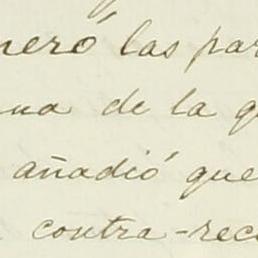 neró las par
una de la q
añadió que
contra-rec